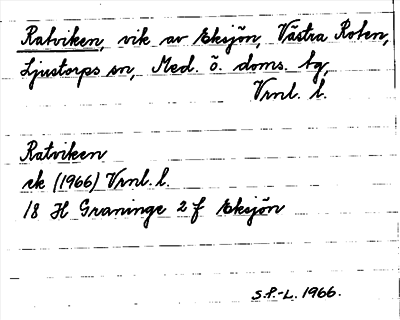 Ratviken, vik av Eksjön, Västra Roten,
Ljustorps sn, Med. ö. doms. tg,
Vrnl. l.
Ratviken
ek (1966) Vrnl. l.
18 H Graninge 2 f Eksjön
S.P.-L. 1966.